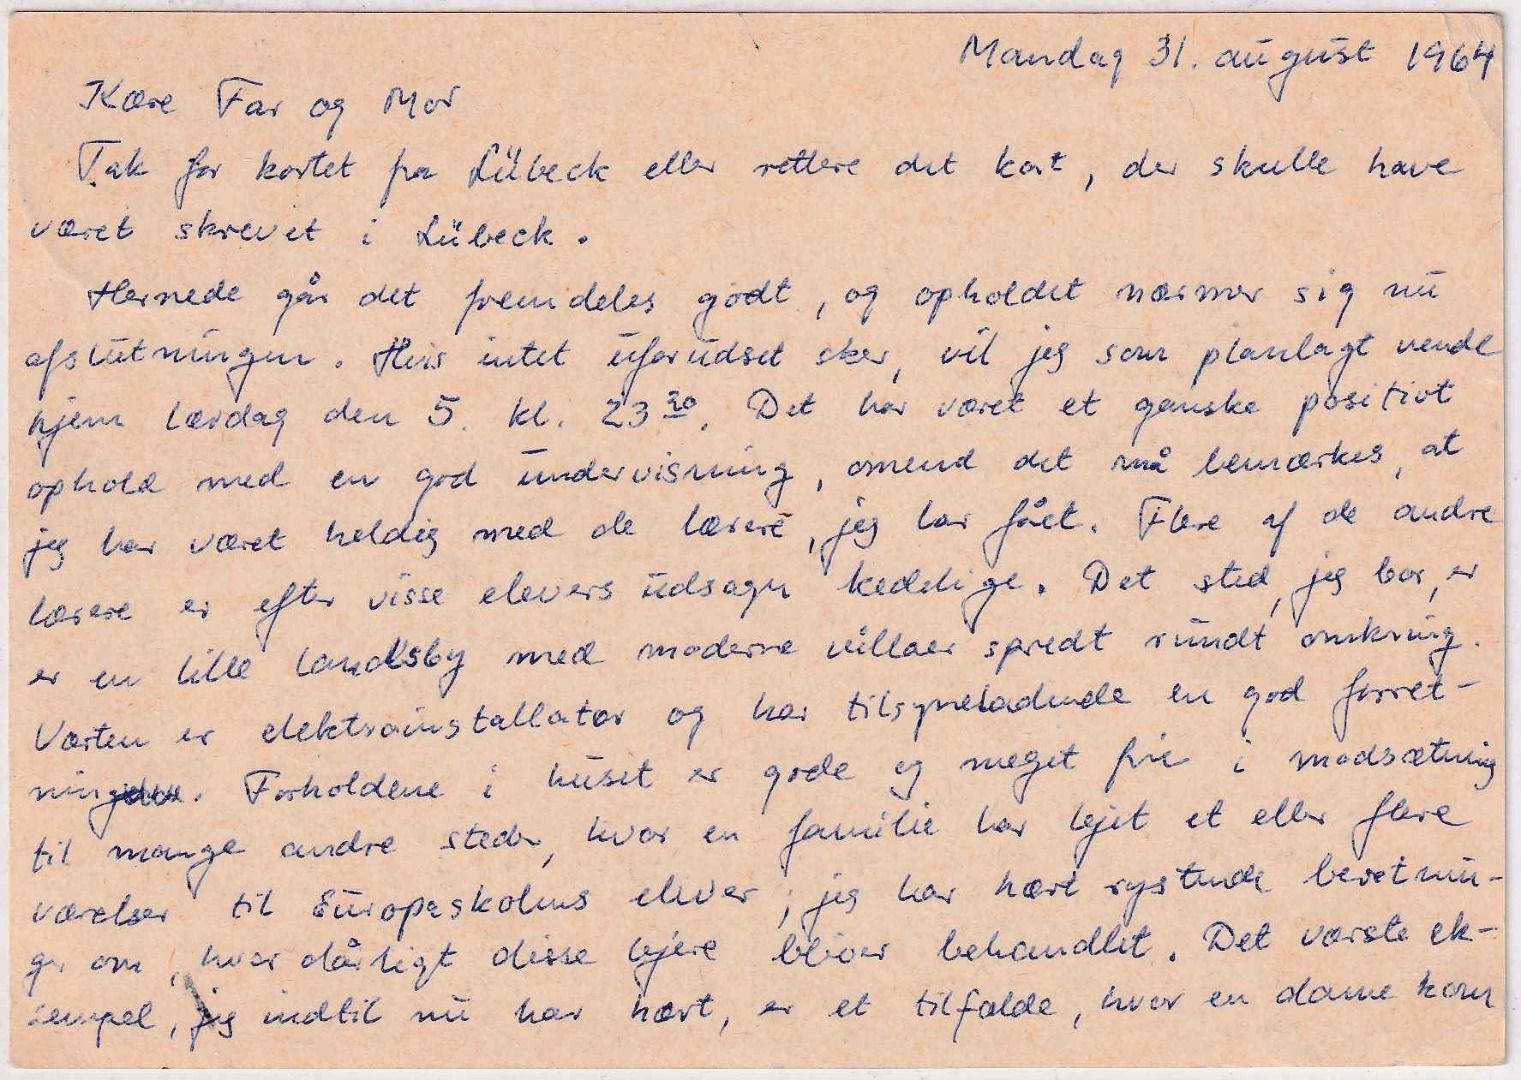 Mandag 31. august 1964
Kære Far og Mor
Tak for kortet fra Lübeck eller rettere det kort, der skulle have
været skrevet i Lübeck.
Hernede går det fremdeles godt, og opholdet nærmer sig nu
afslutningen. Hvis intet uforudset sker, vil jeg som planlagt vende
hjem lørdag den 5. kl. 23 20. Det har været et ganske positivt
ophold med en god undervisning, omend det må bemærkes, at
jeg har været heldig med de lærere, jeg har fået. Flere af de andre
lærere er efter visse elevers udsagn kedelige. Det sted, jeg bor, er
er en lille landsby med moderne villaer spredt rundt omkring.
Værten er elektroinstallatør og har tilsyneladende en god forret-
ning. Forholdene i huset er gode og meget frie i modsætning
til mange andre steder, hvor en familie har lejet et eller flere
værelser til Europaskolens elever; jeg har hørt rystende beretnin-
ger om, hvor dårligt disse lejere bliver behandlet. Det værste ek-
sempel, jeg indtil nu har hørt, er et tilfælde, hvor en dame kom